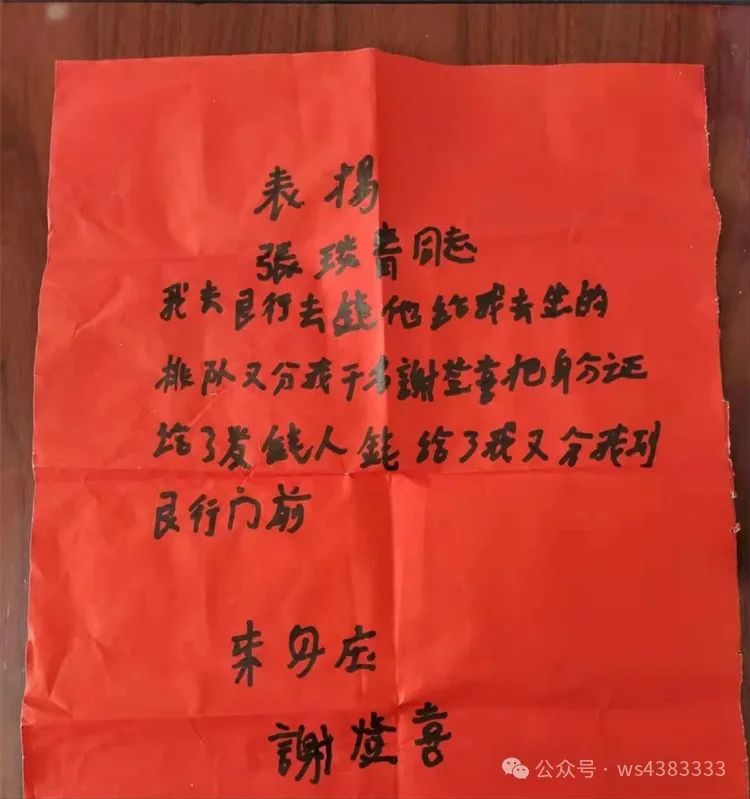 表扬
張琰青同志
我去艮行去錢他给我去坐的
排队又分我千名謝荳喜把身分证
给了发錢人錢给了我又分我到
艮行门前
朱毋庄
謝荳喜
公众号·ws4383333